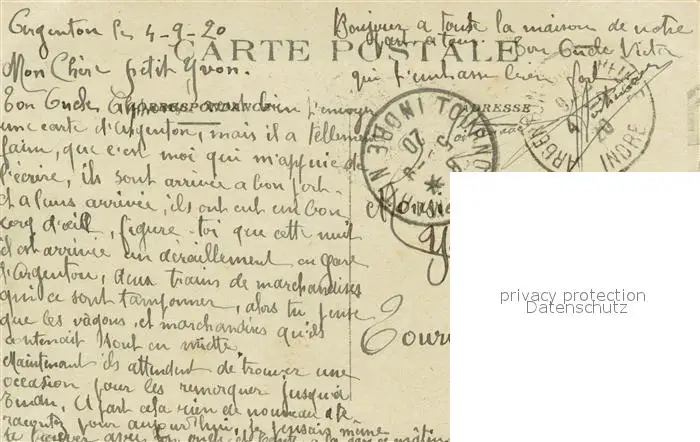 Argenton le 4-9-20
Bonjour a toute la maison de notre
part a tous. Ton Oncle Victor
qui t'embrasse bien fort
CARTE POSTALE
Mon Cher petit Yvon.
CORRESPONDANCE
ADRESSE
Ton Oncle, avait bien t'envoyer
une carte d'Argenton, mais il a tellement
faim, que c'est moi qui m'appuie de
l'écrire, ils sont arrivée a bon port
et a leurs arrivée, ils ont eut un bon
coup d'œil, figure-toi que cette nuit
il est arrivée un déraillement en gare
d'Argenton, deux trains de marchandises
qui ce sont tamponner, alors tu pense
que les wagons, et marchandises qu'ils
contenait sont en miette.
Maintenant ils attendent de trouver une
occasion pour les remorquer jusqu'a
A part cela rien de nouveau a te
raconter pour aujourd'hui, je pensais même
INDRE
20
ARGENTON
INDRE
20
Monsieur
Tour
privacy protection
Datenschutz